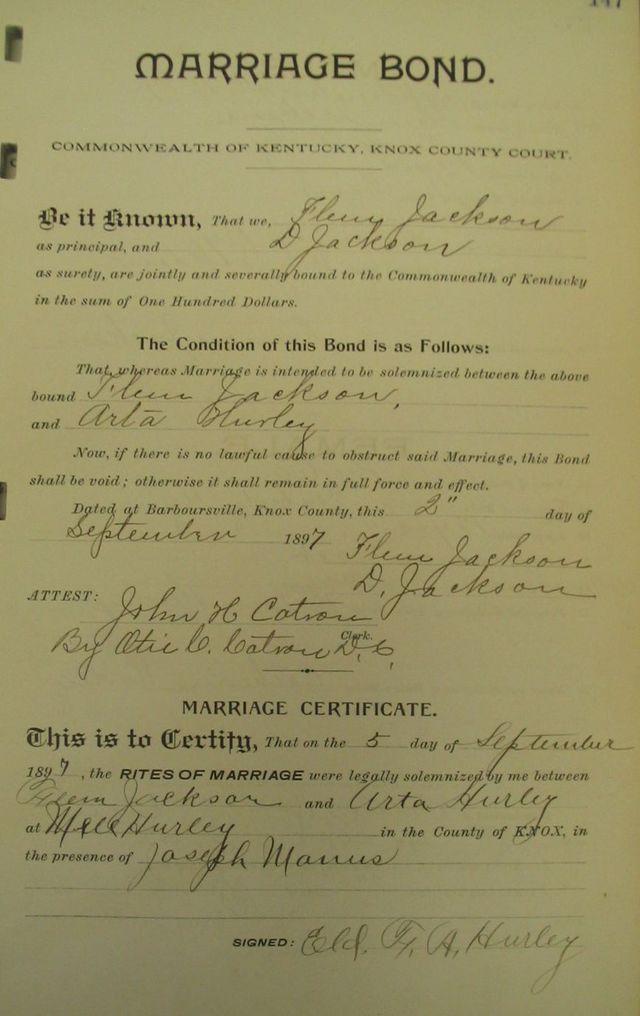 147
MARRIAGE BOND.
COMMONWEALTH OF KENTUCKY, KNOX COUNTY COURT.
Be it Known, That we, Flem Jackson
as principal, and D Jackson
as surety, are jointly and severally bound to the Commonwealth of Kentucky
in the sum of One Hundred Dollars.
The Condition of this Bond is as Follows:
That, whereas Marriage is intended to be solemnized between the above
bound Flem Jackson,
and Arta Hurley
Now, if there is no lawful cause to obstruct said Marriage, this Bond
shall be void; otherwise it shall remain in full force and effect.
Dated at Barboursville, Knox County, this 2" day of
September 1897
Flem Jackson
D. Jackson
ATTEST: John H Catron
Clerk.
By Otis C. Catron D.C.
MARRIAGE CERTIFICATE.
This is to Certify, That on the 5 day of September
1897, the RITES OF MARRIAGE were legally solemnized by me between
Flem Jackson and Arta Hurley
at Hurley in the County of KNOX, in
the presence of Joseph Manus
SIGNED: Eld. F. A. Hurley